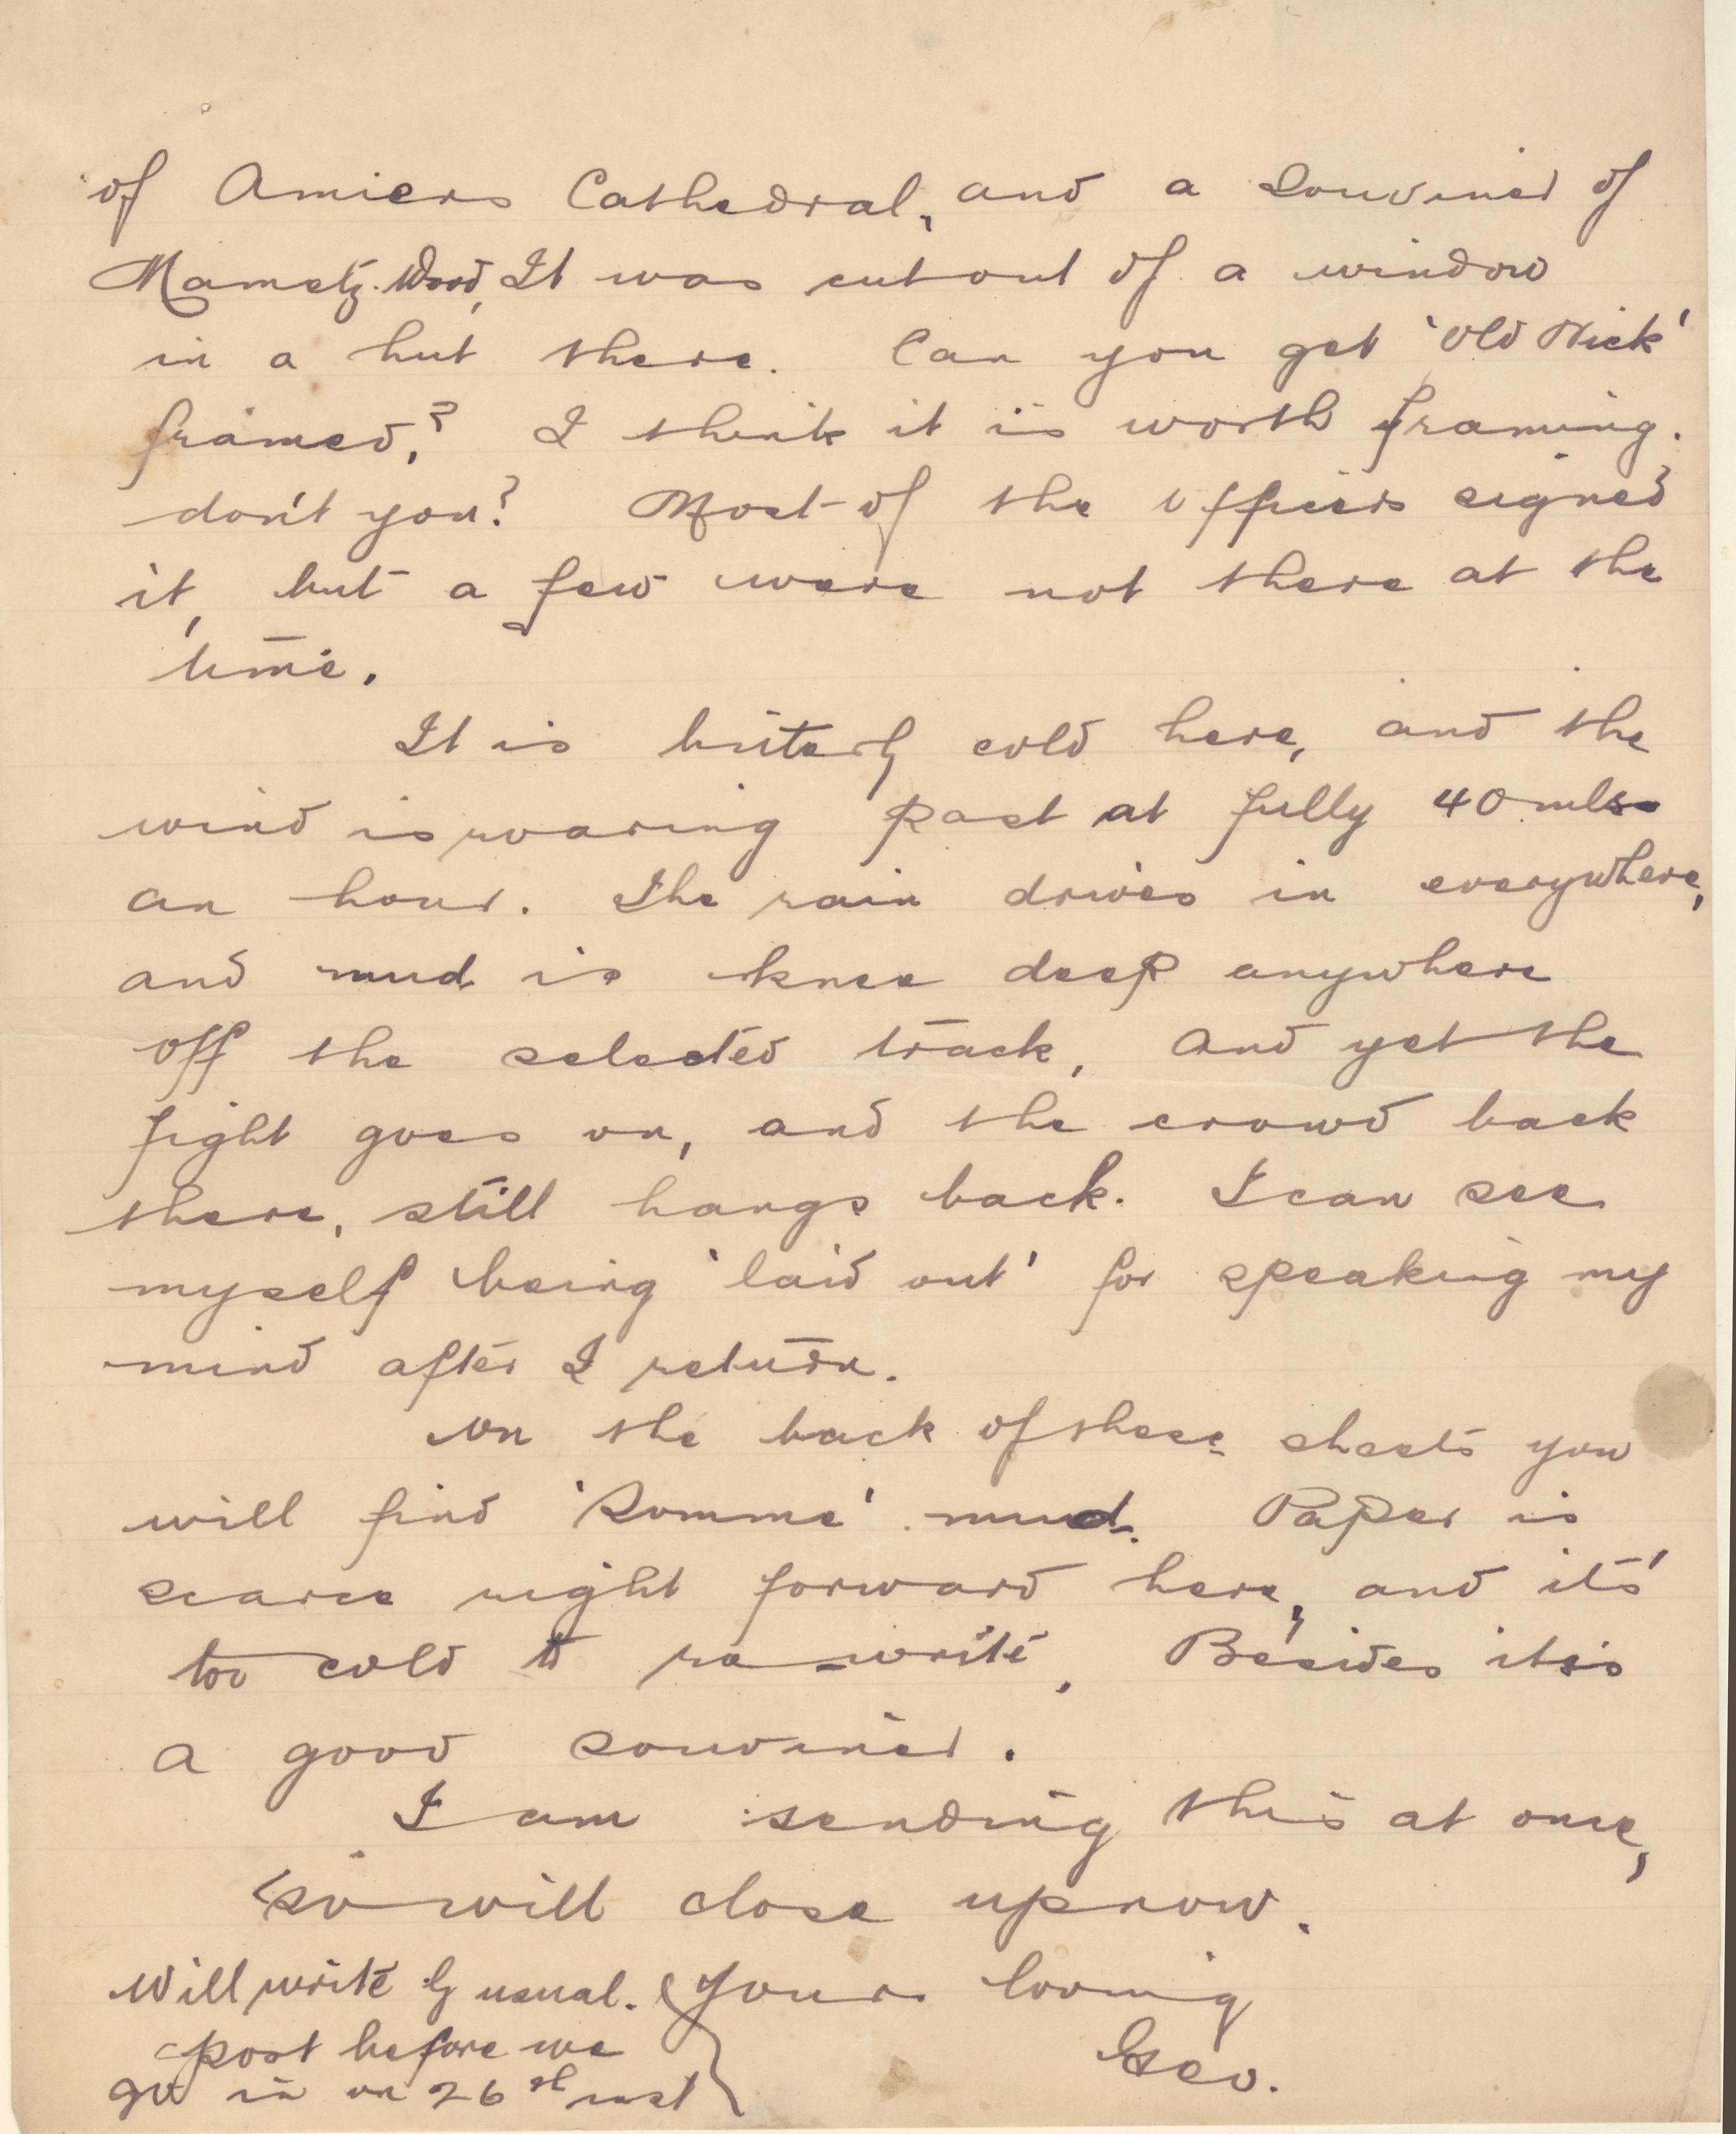 of Amiens Cathedral, and a souvenier of
Mametz Wood, It was cut out of a window
in a hut there. Can you get 'Old Nick'
framed,? I think it is worth framing.
don't you? Most of the officers signed
it, but a few were not there at the
time.
It is bitterly cold here, and the
wind is roaring past at fully 40 mls
an hour. The rain drives in everywhere,
and mud is knee deep anywhere
off the selected track, and yet the
fight goes on, and the crowd back
there, still hangs back. I can see
myself being 'laid out' for speaking my
mind after I return.
On the back of these sheets you
will find 'Somme' mud. Paper is
scarce right forward here, and it's
too cold to re-write. Besides it is
a good souvenier.
I am sending this at once,
so will close up now.
Your loving
Geo.
Will write by usual.
post before we
go in on 26th inst